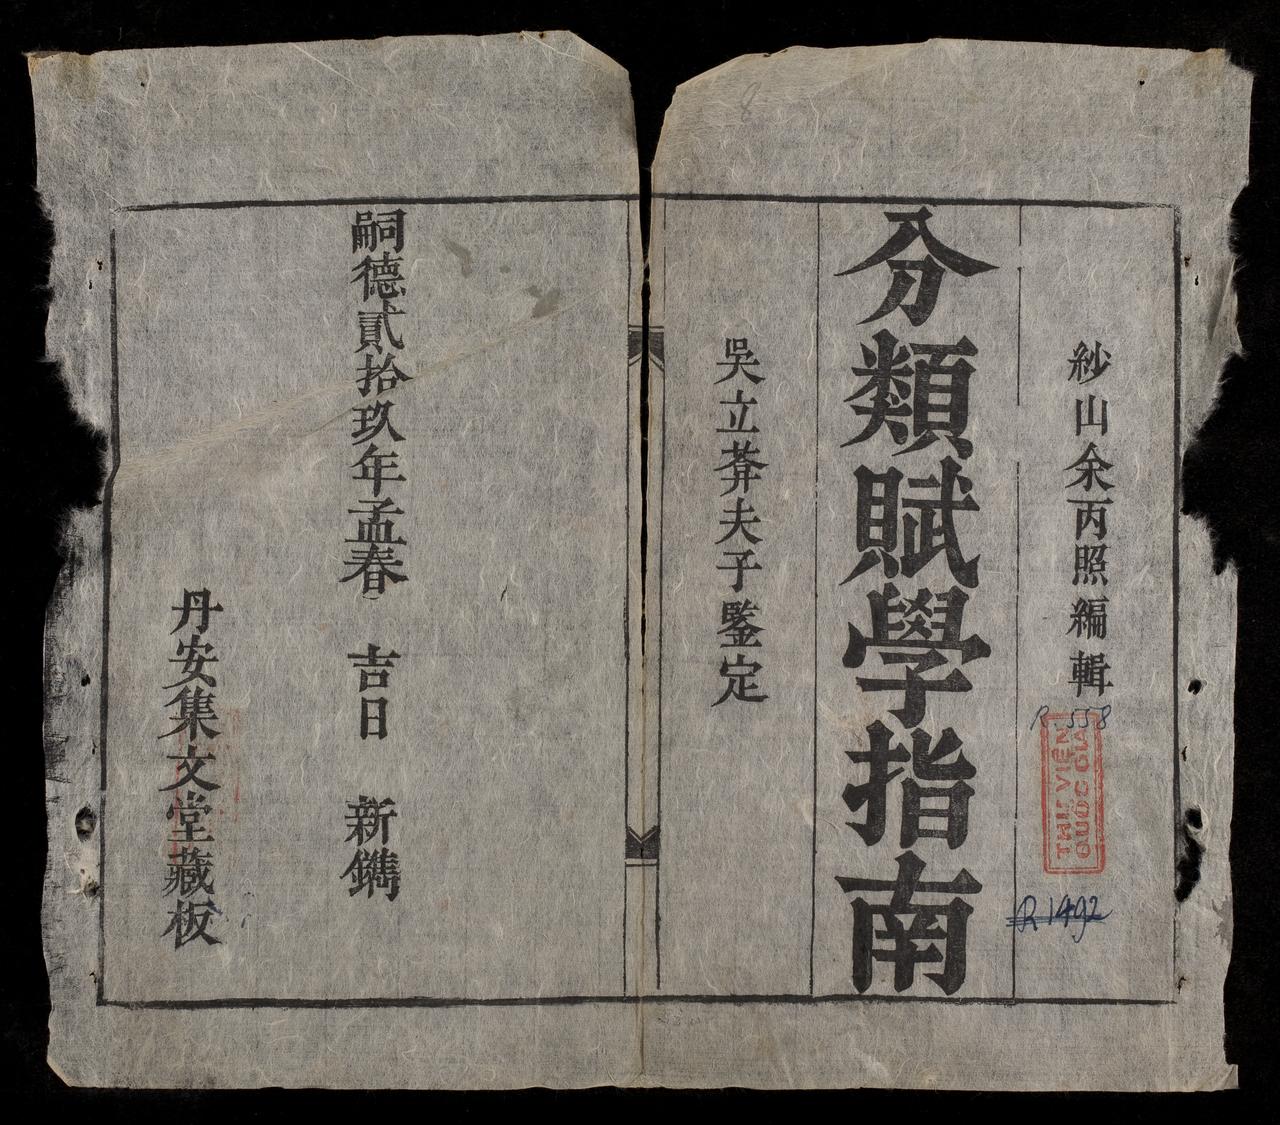 紗山余丙照編輯
分類賦學指南
吳立莾夫子鑒定
嗣德貳拾玖年孟春 吉日 新鐫
丹安集文堂藏板
R.558
THƯ VIỆN
QUỐC GIA
R1492
8